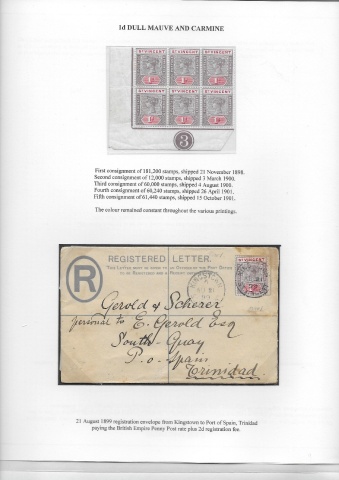 1d DULL MAUVE AND CARMINE
ST VINCENT ST VINCENT ST VINCENT
ST VINCENT ST VINCENT ST VINCENT
3
First consignment of 181,200 stamps, shipped 21 November 1898.
Second consignment of 12,000 stamps, shipped 3 March 1900.
Third consignment of 60,000 stamps, shipped 4 August 1900.
Fourth consignment of 60,240 stamps, shipped 26 April 1901.
Fifth consignment of 61,440 stamps, shipped 15 October 1901.
The colour remained constant throughout the various printings.
R
REGISTERED LETTER.
ST VINCENT
Gerold & Scherer
personal to E. Gerold Esq
South Quay
P. o. Spain
Trinidad
21 August 1899 registration envelope from Kingstown to Port of Spain, Trinidad
paying the British Empire Penny Post rate plus 2d registration fee.